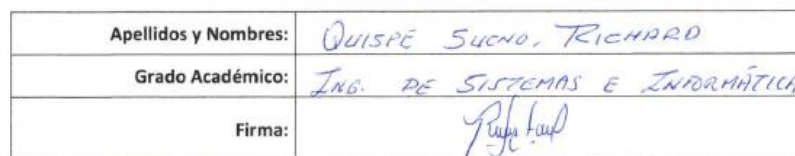 Apellidos y Nombres: QUISPE SUCNO, RICHARD
Grado Académico: ING. DE SISTEMAS E INFORMÁTICA
Firma: